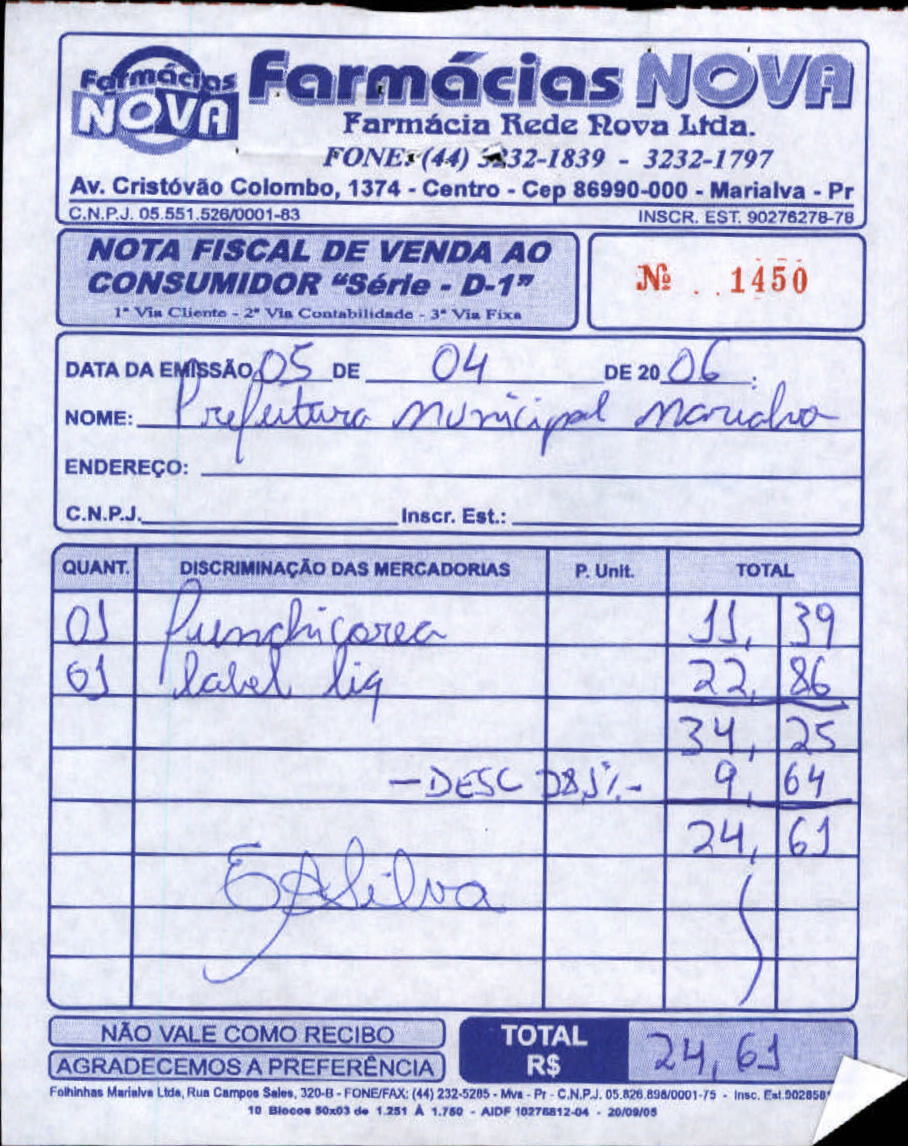 Farmácias NOVA
Farmácias NOVA
Farmácia Rede Nova Ltda.
FONE: (44) 3232-1839 - 3232-1797
Av. Cristóvão Colombo, 1374 - Centro - Cep 86990-000 - Marialva - Pr
C.N.P.J. 05.551.526/0001-83 INSCR. EST. 90276278-78
NOTA FISCAL DE VENDA AO
CONSUMIDOR "Série - D-1"
1ª Via Cliente - 2ª Via Contabilidade - 3ª Via Fixa
Nº 1450
DATA DA EMISSÃO 05 DE 04 DE 20 06
NOME: Prefeitura Municipal Marialva
ENDEREÇO:
C.N.P.J. Inscr. Est.:
QUANT. DISCRIMINAÇÃO DAS MERCADORIAS P. Unit. TOTAL
01 11,39
01 label liq 22,86
34,25
-DESC 9,64
24,61
EASilva
NÃO VALE COMO RECIBO
AGRADECEMOS A PREFERÊNCIA
TOTAL R$ 24,61
Folhinhas Marialva Ltda, Rua Campos Sales, 320-B - FONE/FAX: (44) 232-5285 - Mva - Pr - C.N.P.J. 05.826.898/0001-75 - Insc. Est.902858
10 Blocos 50x03 de 1.251 À 1.750 - AIDF 10276812-04 - 20/09/05